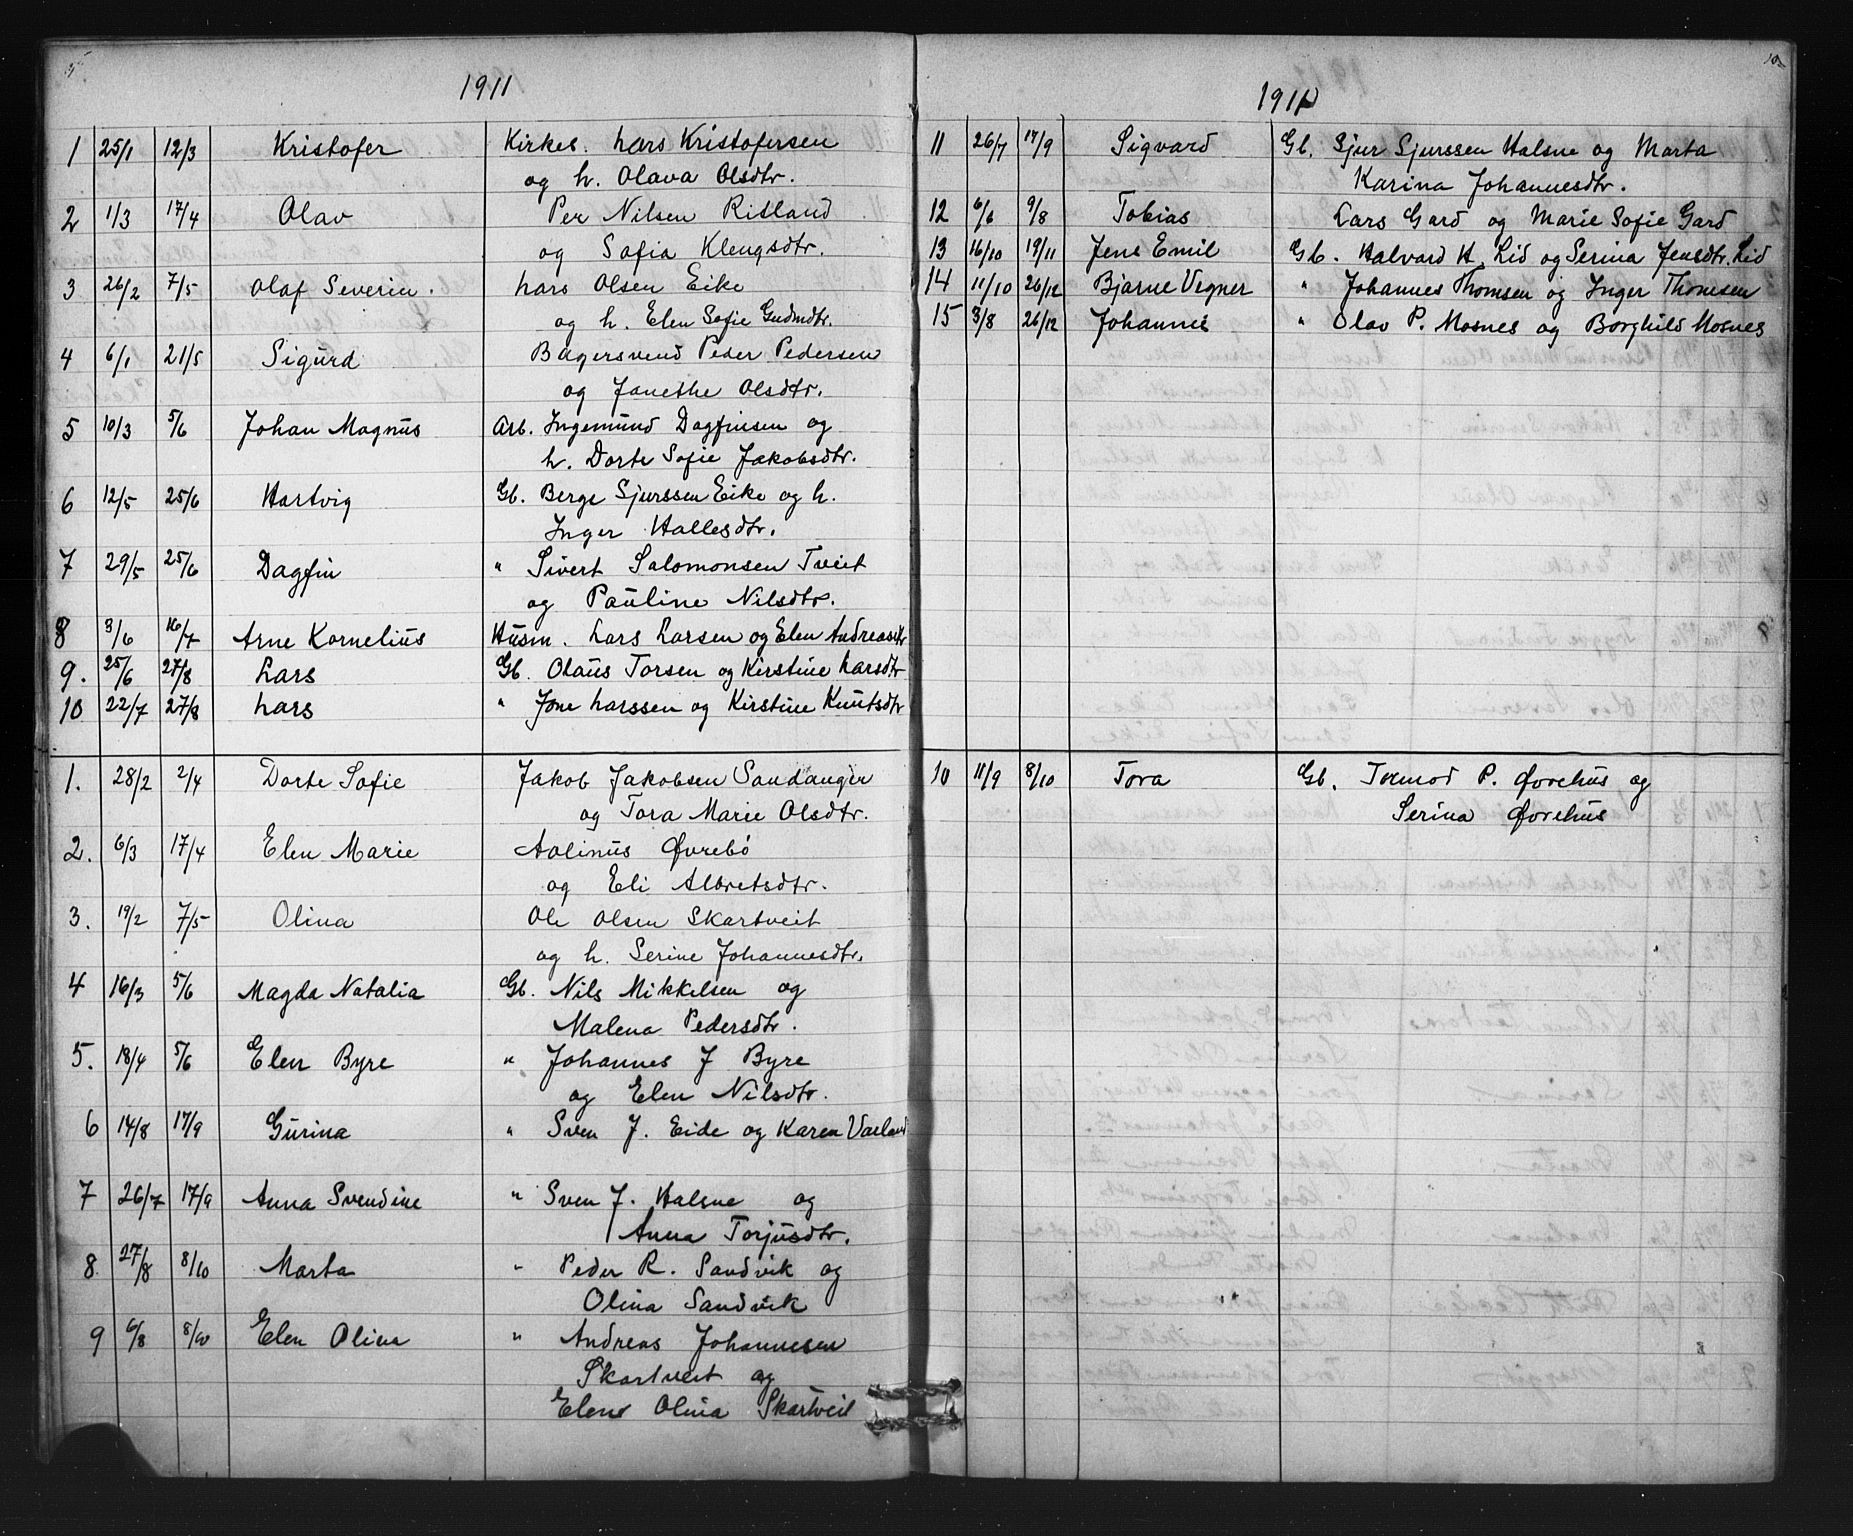 1911
1 25/1 12/3 Kristofer Kirkes. Lars Kristofersen
og h. Olava Olsdtr.
2 1/3 17/4 Olav Per Nilsen Ritland
og Sofia Klengsdtr.
3 26/2 7/5 Olaf Severin. Lars Olsen Eike
og h. Elen Sofie Gudmdtr.
4 6/1 21/5 Sigurd Bagersvend Peder Pedersen
og Janethe Olsdtr.
5 10/3 5/6 Johan Magnus Arb. Ingemund Dagfinsen og
h. Dorte Sofie Jakobsdtr.
6 12/5 25/6 Hartvig Gb. Berge Sjurssen Eike og h.
Inger Hallesdtr.
7 29/5 25/6 Dagfin " Sivert Salomonsen Tveit
og Pauline Nilsdtr.
8 3/6 16/7 Arne Kornelius Husm. Lars Larsen og Elen Andreasdtr
9. 25/6 27/8 Lars Gb. Olaus Torsen og Kirstine Larsdtr
10 22/7 27/8 Lars " Jone Larssen og Kirstine Knutsdtr
1. 28/2 2/4 Dorte Sofie Jakob Jakobsen Sandanger
og Tora Marie Olsdtr.
2. 6/3 17/4 Elen Marie Aolinus Øvrebø
og Eli Albretsdtr.
3. 19/2 7/5 Olina Ole Olsen Skartveit
og h. Serine Johannesdtr.
4 16/3 5/6 Magda Natalia Gb. Nils Mikkelsen og
Malena Pedersdtr.
5. 18/4 5/6 Elen Byre " Johannes J Byre
og Elen Nilsdtr.
6 14/8 17/9 Gurina " Sven J. Eide og Karen Vaeland
7 26/7 17/9 Anna Svendine " Sven J. Halsne og
Anna Torjusdtr.
8 27/8 8/10 Marta " Peder R. Sandvik og
Olina Sandvik
9 6/8 8/10 Elen Olina " Andreas Johannesen
Skartveit og
Elene Olina Skartveit
1911
11 26/7 17/9 Sigvard Gb. Sjur Sjurssen Halsne og Marta
Karina Johannesdtr.
12 6/6 9/8 Tobias Lars Gard og Marie Sofie Gard
13 16/10 19/11 Jens Emil Gb. Halvard H. Lid og Serina Jensdtr. Lid
14 11/10 26/12 Bjarne Vegner " Johannes Thomsen og Inger Thomsen
15 3/8 26/12 Johannes " Olav P. Mosnes og Borghild Mosnes
10 11/9 8/10 Tora Gb. Tormod P. Øvrehus og
Serina Øvrehus